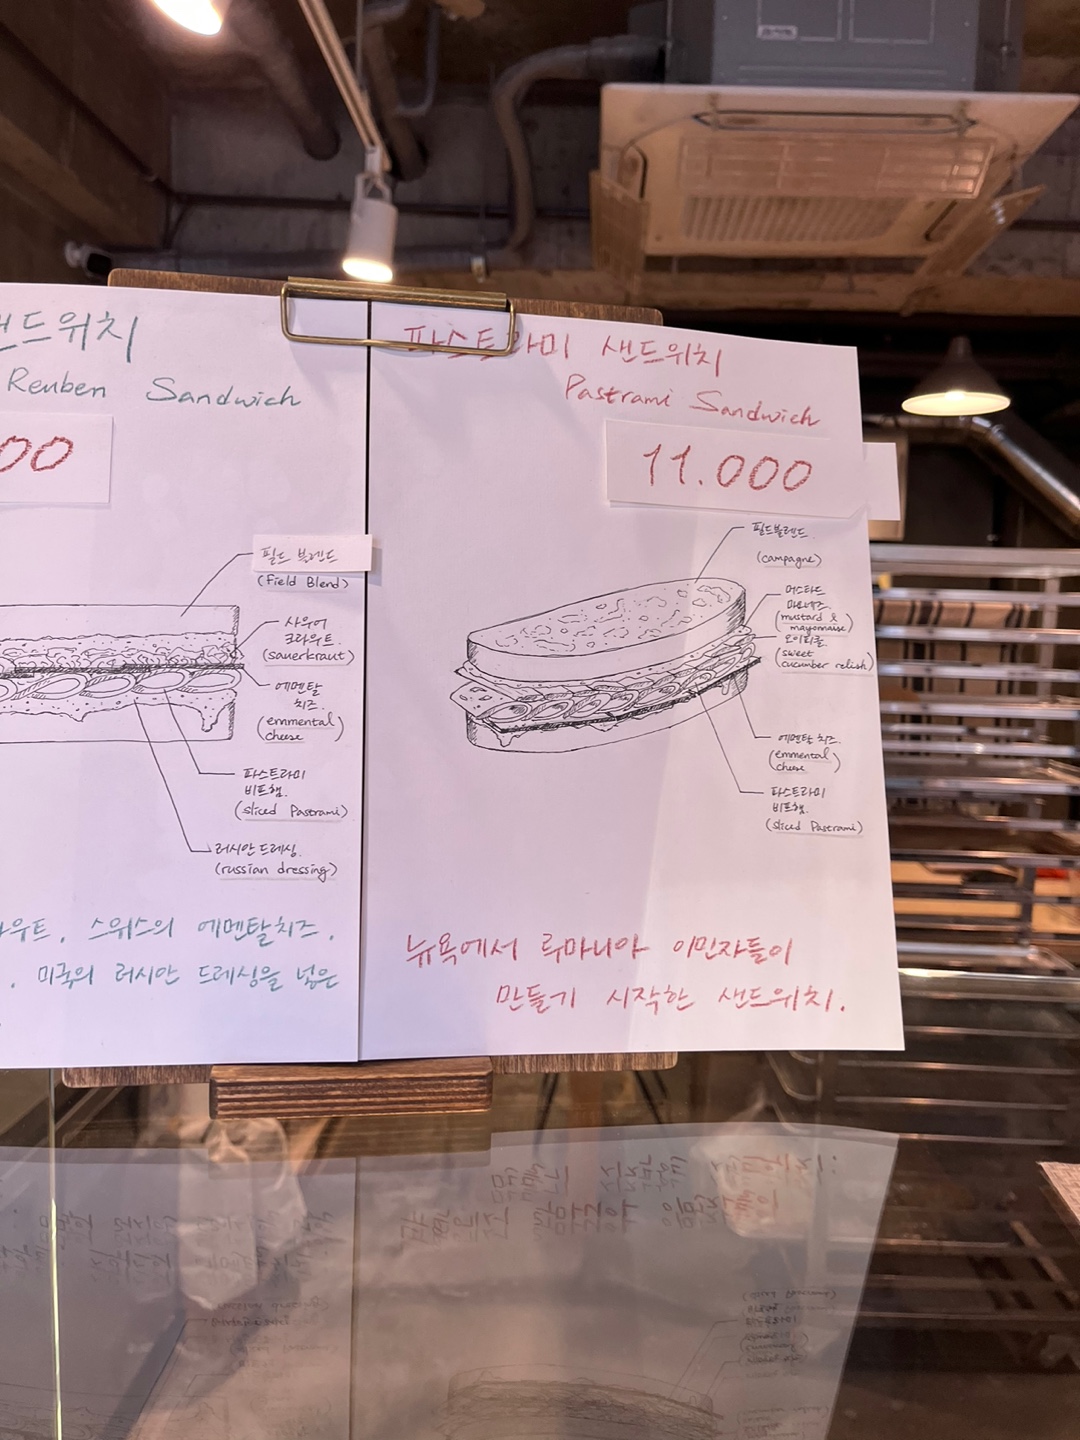 샌드위치
Reuben Sandwich
00
필드 블렌드
(Field Blend)
사우어
크라우트.
(sauerkraut)
에멘탈
치즈.
(emmental
cheese)
파스트라미
비프햄.
(sliced Pastrami)
러시안 드레싱.
(russian dressing)
우트. 스위스의 에멘탈치즈.
. 미국의 러시안 드레싱을 넣은
파스트라미 샌드위치
Pastrami Sandwich
11.000
필드블렌드.
(campagne)
머스타드
마요네즈.
(mustard &
mayonnaise)
오이피클
(sweet
cucumber relish)
에멘탈 치즈.
(emmental
cheese)
파스트라미
비프햄.
(sliced Pastrami)
뉴욕에서 루마니아 이민자들이
만들기 시작한 샌드위치.